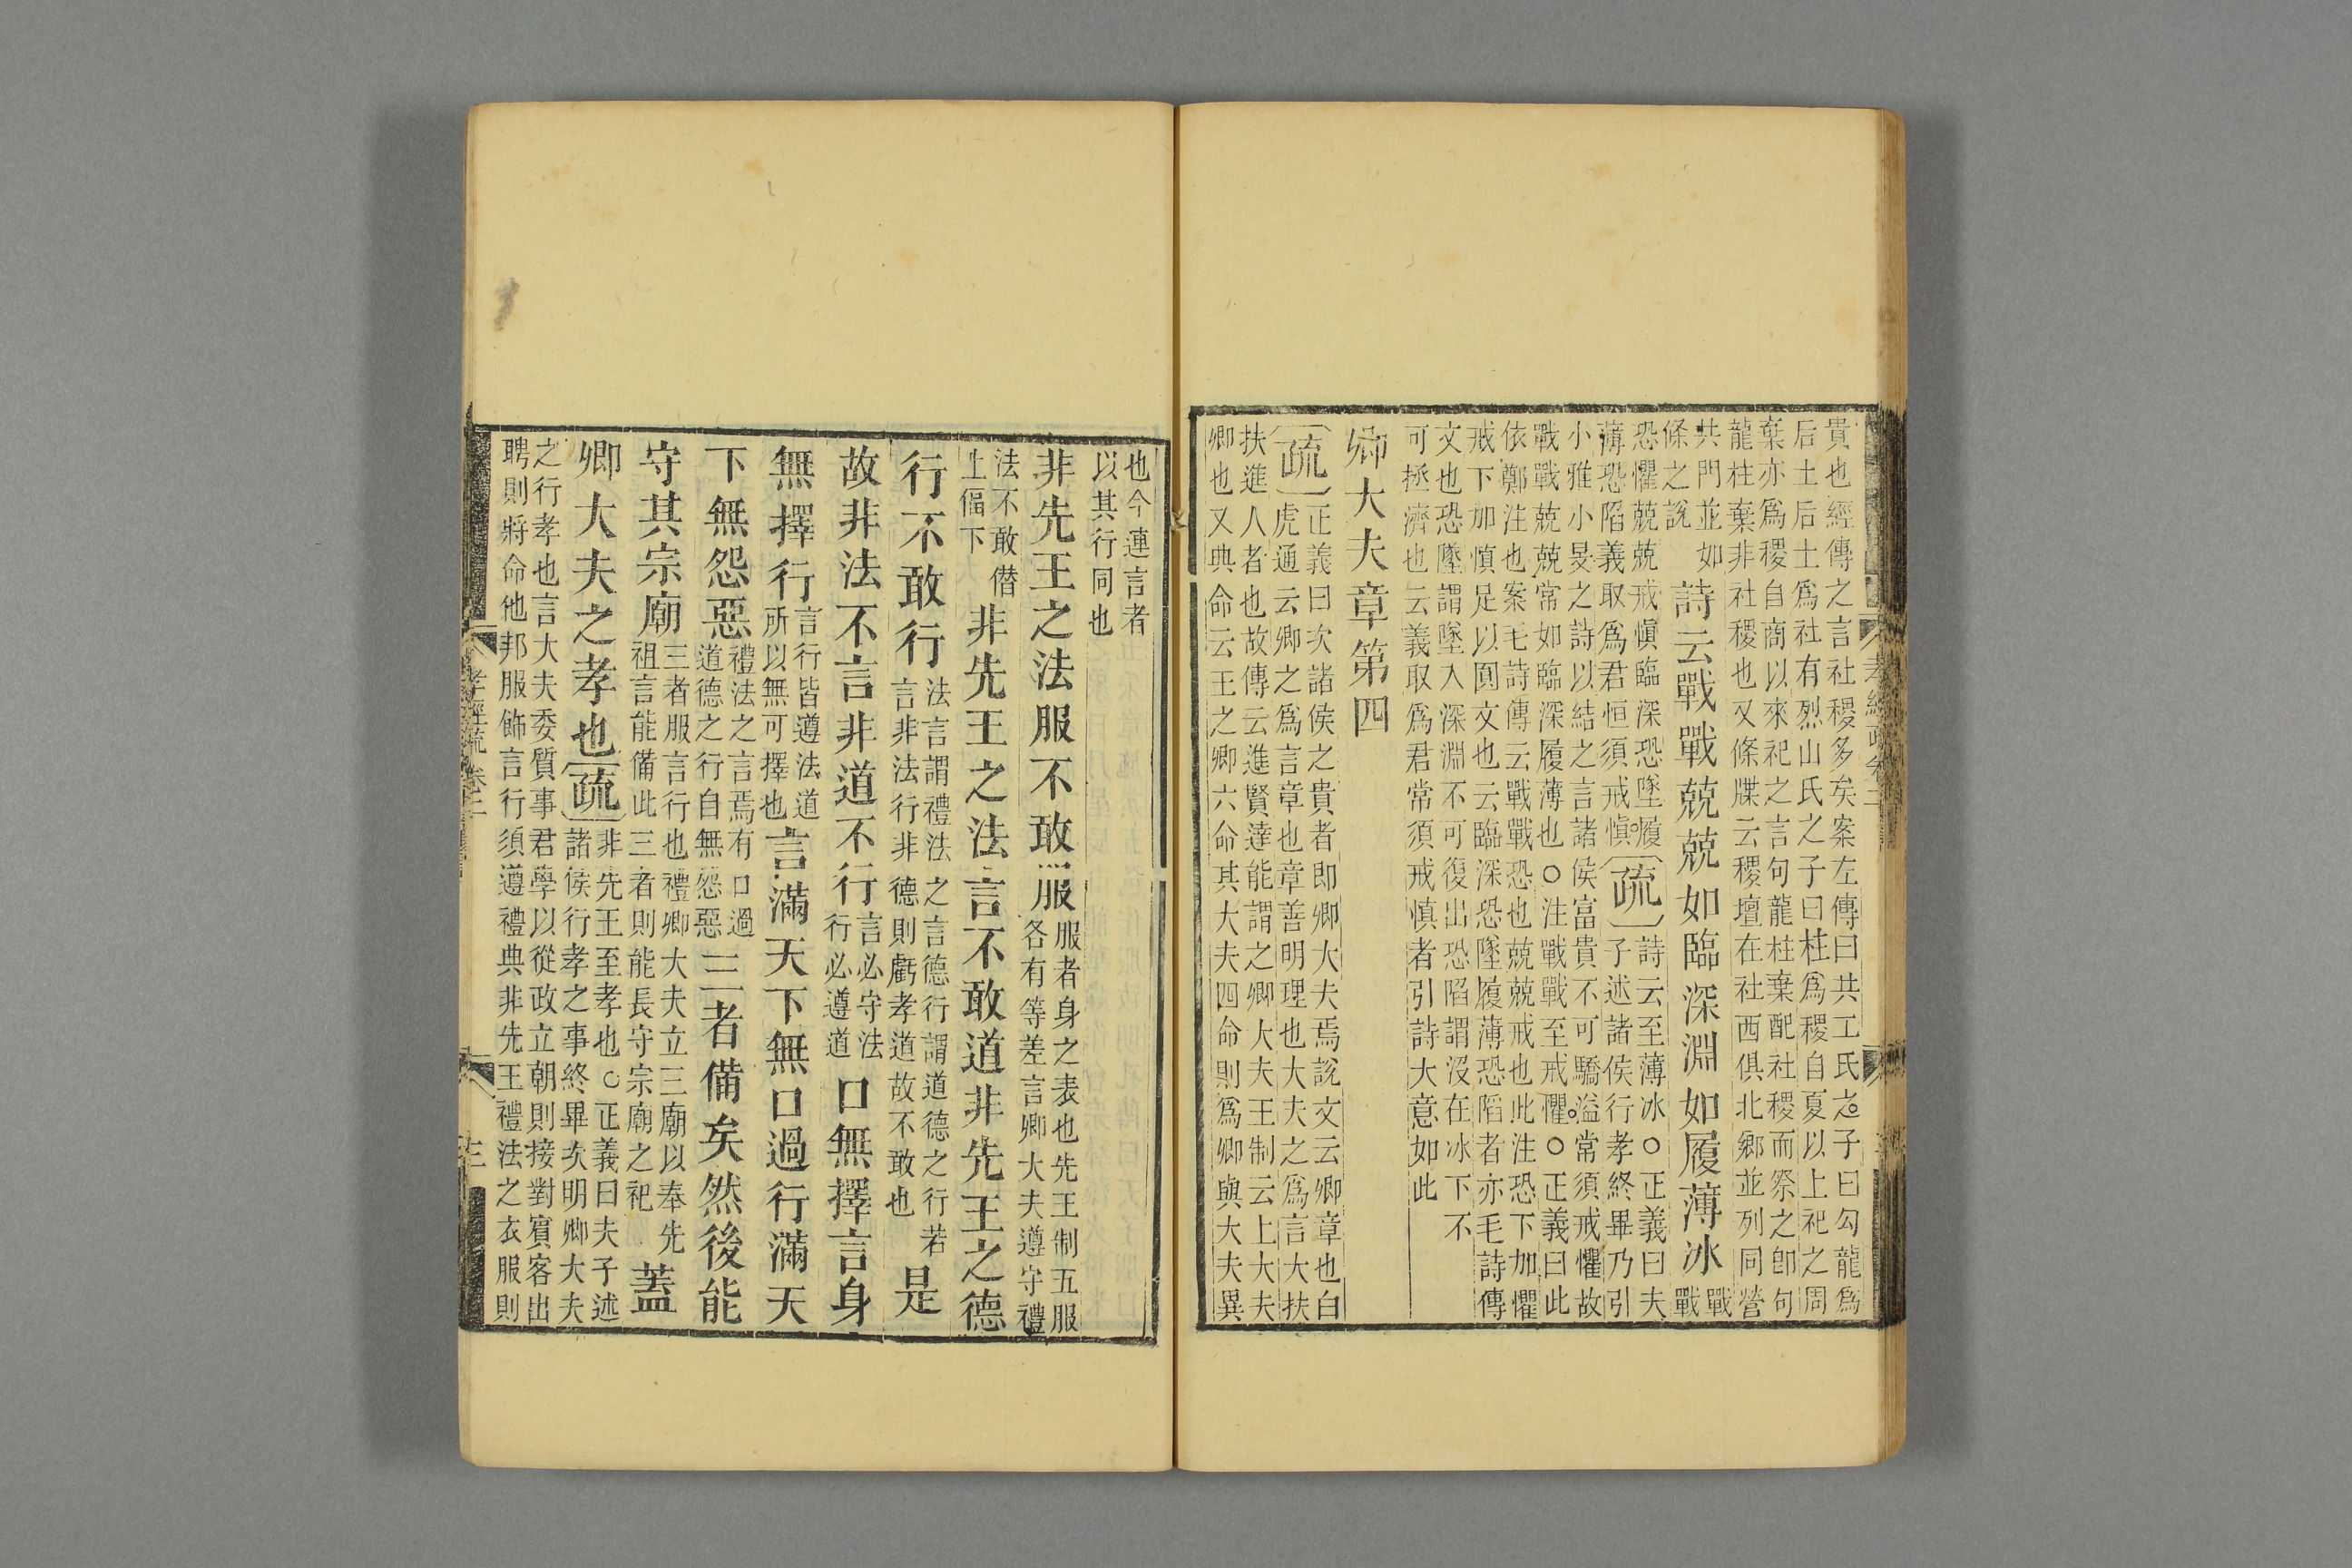 貴也經傳之言社稷多矣案左傳曰共工氏之子曰勾龍爲
后土后土爲社有烈山氏之子曰柱爲稷自夏以上祀之周
棄亦爲稷自商以來祀之言句龍柱棄配社稷而祭之卽句
龍柱棄非社稷也又條牒云稷壇在社西俱北鄉並列同營
共門並如
條之說
詩云戰戰兢兢如臨深淵如履薄冰
戰
戰
恐懼兢兢戒愼臨深恐墜履
薄恐陷義取爲君恒須戒愼
疏
詩云至薄冰○正義曰夫
子述諸侯行孝終畢乃引
小雅小旻之詩以結之言諸侯富貴不可驕溢常須戒懼故
戰戰兢兢常如臨深履薄也○注戰戰至戒懼○正義曰此
依鄭注也案毛詩傳云戰戰恐也兢兢戒也此注恐下加懼
戒下加愼足以圓文也云臨深恐墜履薄恐陷者亦毛詩傳
文也恐墜謂墜入深淵不可復出恐陷謂沒在冰下不
可拯濟也云義取爲君常須戒慎者引詩大意如此
卿大夫章第四
疏
正義曰次諸侯之貴者即卿大夫焉說文云卿章也白
虎通云卿之爲言章也章善明理也大夫之爲言大扶
扶進人者也故傳云進賢達能謂之卿大夫王制云上大夫
卿也又典命云王之卿六命其大夫四命則爲卿與大夫異
也今連言者
以其行同也
非先王之法服不敢服
服者身之表也先王制五服
各有等差言卿大夫遵守禮
法不敢僣
上偪下
非先王之法言不敢道非先王之德
行不敢行
法言謂禮法之言德行謂道德之行若
言非法行非德則虧孝道故不敢也
是
故非法不言非道不行
言必守法
行必遵道
口無擇言身
無擇行
言行皆遵法道
所以無可擇也
言滿天下無口過行滿天
下無怨惡
禮法之言焉有口過
道德之行自無怨惡
三者備矣然後能
守其宗廟
三者服言行也禮卿大夫立三廟以奉先
祖言能備此三者則能長守宗廟之祀
蓋
卿大夫之孝也
疏
非先王至孝也○正義曰夫子述
諸侯行孝之事終畢次明卿大夫
之行孝也言大夫委質事君學以從政立朝則接對賓客出
聘則將命他邦服飾言行須遵禮典非先王禮法之衣服則
孝經疏卷二
三